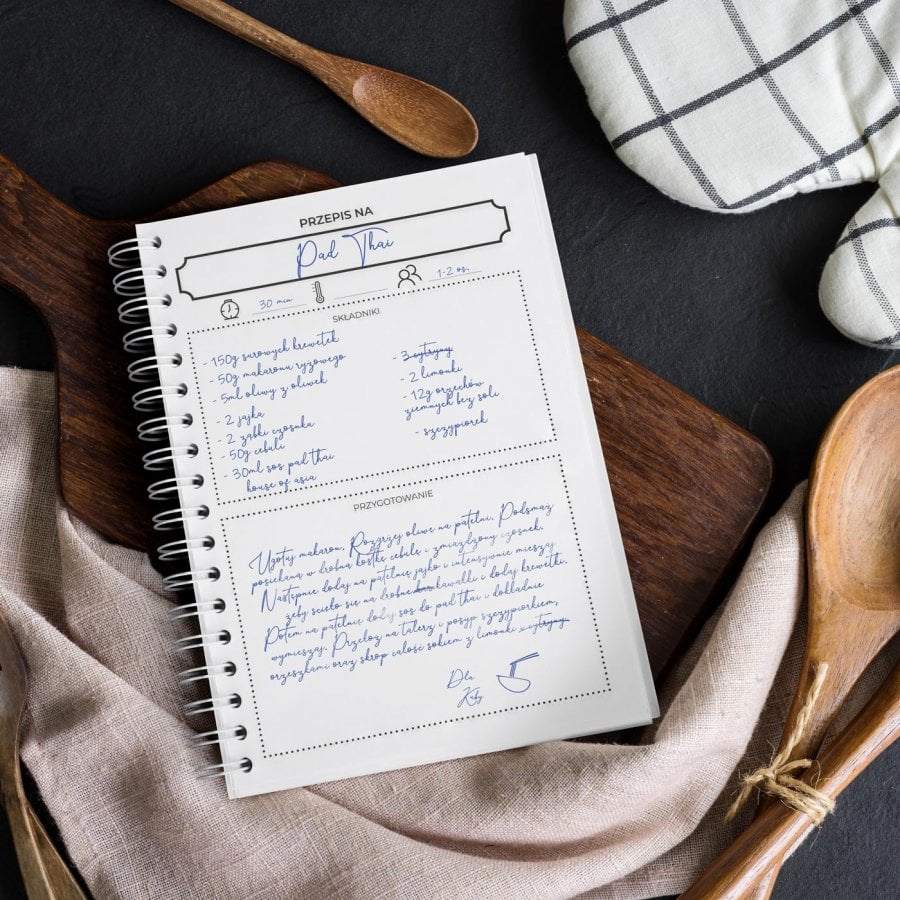 PRZEPIS NA
Pad Thai
30 min
1-2 os.
SKŁADNIKI
- 150g surowych krewetek
- 50g makaronu ryżowego
- 5ml oliwy z oliwek
- 2 jajka
- 2 ząbki czosnku
- 50g cebuli
- 30ml sos pad thai
house of asia
- 3 cytryny
- 2 limonki
- 12g orzechów
ziemnych bez soli
- szczypiorek
PRZYGOTOWANIE
Ugotuj makaron. Rozgrzej oliwę na patelni. Podsmaż
posiekaną w drobną kostkę cebulę i zmiażdżony czosnek.
Następnie dodaj na patelnię jajko i intensywnie mieszaj
żeby ścięło się na drobne kawałki i dodaj krewetki.
Potem na patelnię dodaj sos do pad thai i dokładnie
wymieszaj. Przełóż na talerz i posyp szczypiorkiem,
orzeszkami oraz skrop całość sokiem z limonki i cytryny.
Dla
Kuby